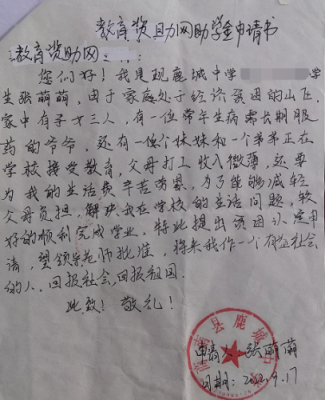 教育资助网助学金申请书
教育资助网
您们好！我是现鹿城中学
学生张萌萌，由于家庭处于经济贫困的山区，
家中有子女三人，有一位常年生病需长期服
药的爷爷，还有一位个妹妹和一个弟弟正在
学校接受教育，父母打工收入微薄，还要
为我的生活费辛苦劳累，为了能够减轻
父母负担，解决我在学校的生活问题，较
好的顺利完成学业，特此提出贫困认定申
请，望领导老师批准，将来我作一个有益社会
的人，回报社会，回报祖国。
此致！敬礼！
申请人：张萌萌
日期：2022.9.17